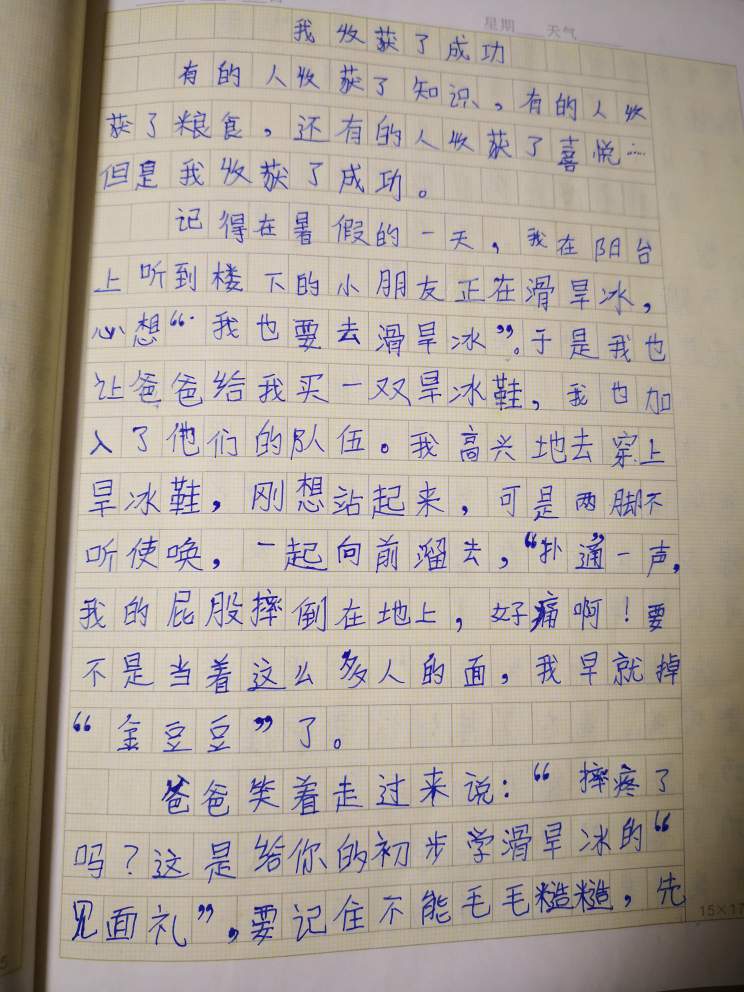 星期 天气
我收获了成功
有的人收获了知识，有的人收
获了粮食，还有的人收获了喜悦……
但是我收获了成功。
记得在暑假的一天，我在阳台
上听到楼下的小朋友正在滑旱冰，
心想“我也要去滑旱冰”。于是我也
让爸爸给我买一双旱冰鞋，我也加
入了他们的队伍。我高兴地去穿上
旱冰鞋，刚想站起来，可是两脚不
听使唤，一起向前溜去，“扑通”一声，
我的屁股摔倒在地上，好痛啊！要
不是当着这么多人的面，我早就掉
“金豆豆”了。
爸爸笑着走过来说：“摔疼了
吗？这是给你的初步学滑旱冰的“
见面礼”，要记住不能毛毛糙糙，先
15×17